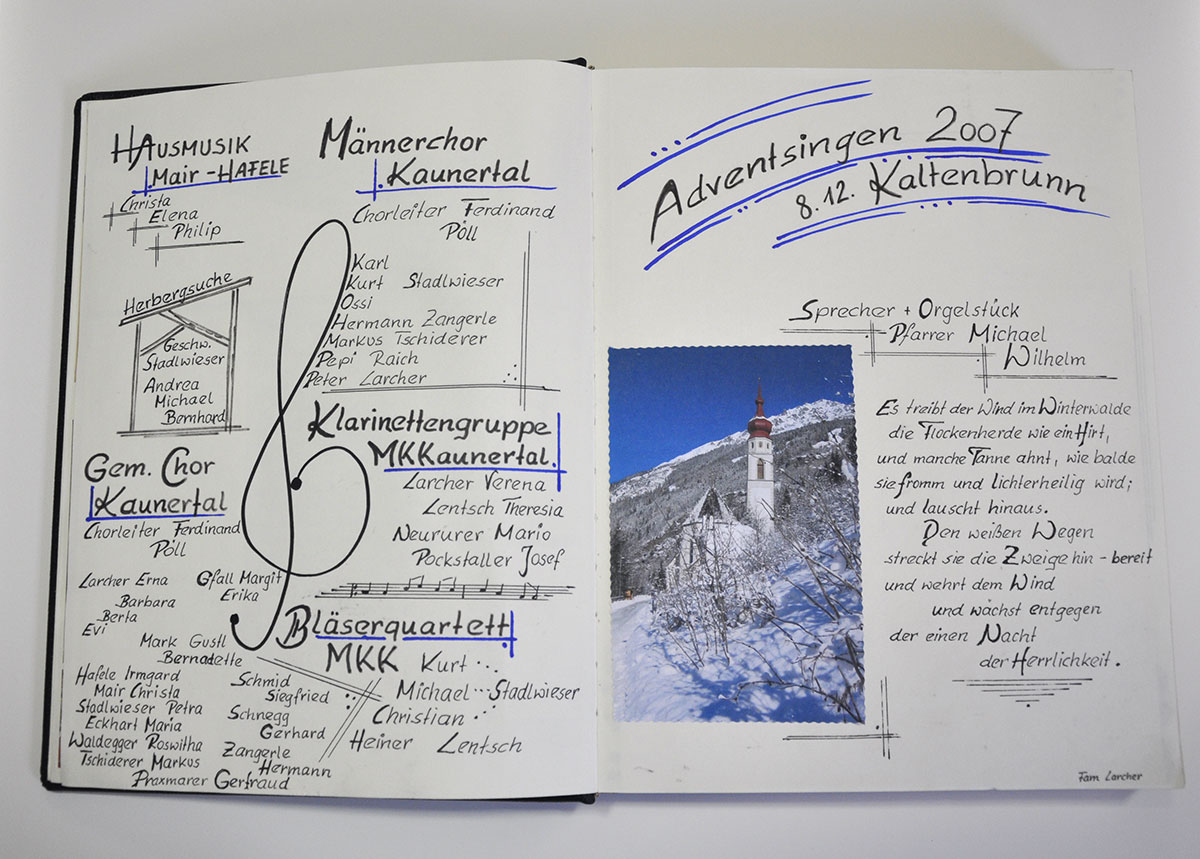 HAUSMUSIK
MAIR - HAFELE
Christa
Elena
Philip
Herbergsuche
Geschw.
Stadlwieser
Andrea
Michael
Bernhard
Gem. Chor
Kaunertal
Chorleiter Ferdinand
Pöll
Larcher Erna
Barbara
Berta
Evi
Gfall Margit
Erika
Mark Gustl
Bernadette
Hafele Irmgard
Mair Christa
Stadlwieser Petra
Eckhart Maria
Waldegger Roswitha
Tschiderer Markus
Praxmarer Gertraud
Schmid
Siegfried
Schnegg
Gerhard
Zangerle
Hermann
Männerchor
Kaunertal
Chorleiter Ferdinand
Pöll
Karl
Kurt Stadlwieser
Ossi
Hermann Zangerle
Markus Tschiderer
Pepi Raich
Peter Larcher
Klarinettengruppe
MKKaunertal.
Larcher Verena
Lentsch Theresia
Neururer Mario
Pockstaller Josef
Bläserquartett
MKK Kurt ...
Michael ... Stadlwieser
Christian ...
Heiner Lentsch
Adventsingen 2007
8.12. Kaltenbrunn
Sprecher + Orgelstück
Pfarrer Michael
Wilhelm
Es treibt der Wind im Winterwalde
die Flockenherde wie ein Hirt,
und manche Tanne ahnt, wie balde
sie fromm und lichterheilig wird;
und lauscht hinaus.
Den weißen Wegen
streckt sie die Zweige hin - bereit
und wehrt dem Wind
und wächst entgegen
der einen Nacht
der Herrlichkeit.
Fam Larcher